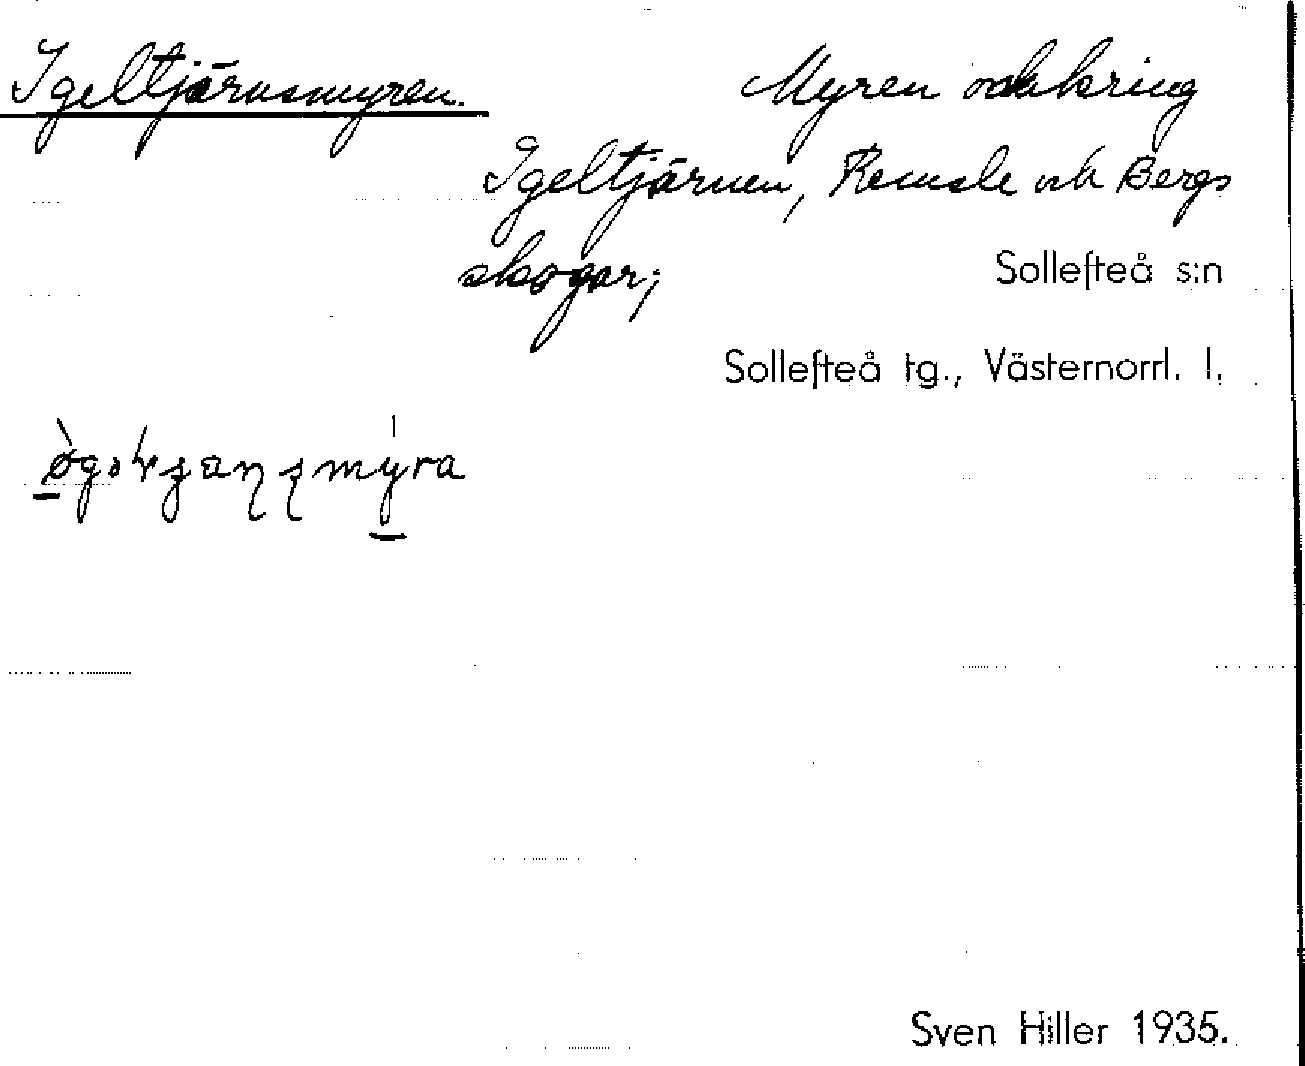 Igeltjärnsmyren.
Myren omkring
Igeltjärnen, Remsle och Bergs
skogar;
Sollefteå s:n
Sollefteå tg., Västernorrl. l.
Sven Hiller 1935.